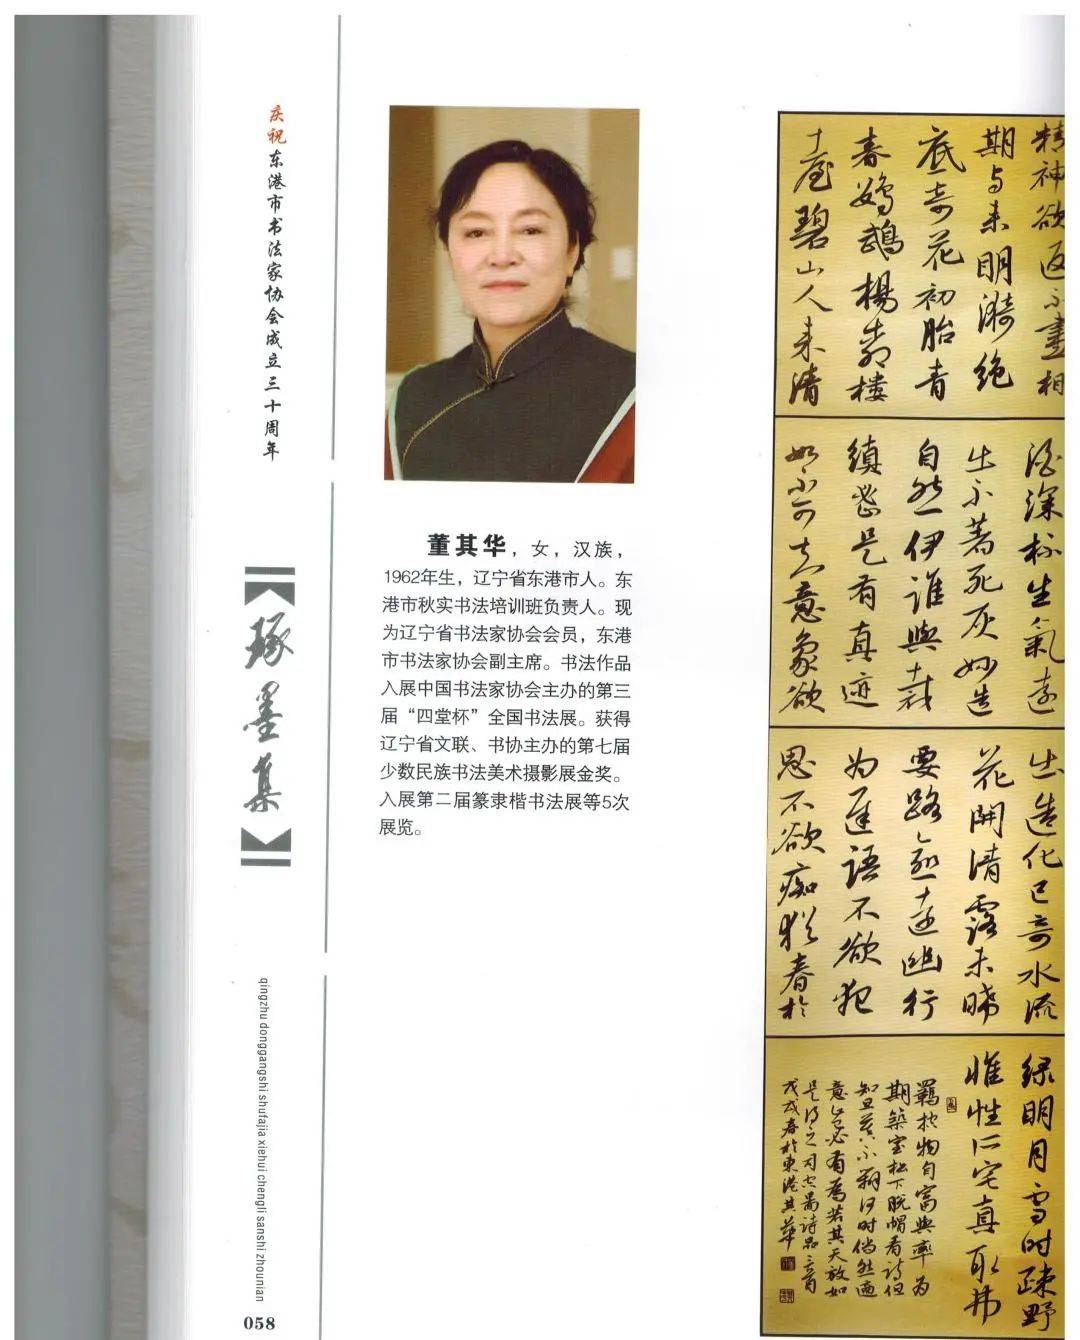 庆祝东港市书法家协会成立三十周年
琢墨集
qingzhu donggangshi shufajia xiehui chengli sanshi zhounian
058
董其华，女，汉族，
1962年生，辽宁省东港市人。东
港市秋实书法培训班负责人。现
为辽宁省书法家协会会员，东港
市书法家协会副主席。书法作品
入展中国书法家协会主办的第三
届“四堂杯”全国书法展。获得
辽宁省文联、书协主办的第七届
少数民族书法美术摄影展金奖。
入展第二届篆隶楷书法展等5次
展览。
精神欲返不盡相
期与来明漪绝
底奇花初胎青
春鹦鹉楊柳楼
臺碧山人来清
酒深杯生氣远
出不著死灰妙造
自然伊谁與裁
缜密是有真迹
如不可知意象欲
出造化已奇水流
花開清露未晞
要路愈远幽行
为迟语不欲犯
思不欲痴犹春於
绿明月雪时疎野
惟性所宅真取弗
羁控物自富與率为
期築室松下脱帽看诗但
知旦暮不辨何时倘然適
意岂必有為若其天放如
是得之司空圖诗品三首
戊戌春於東港其華